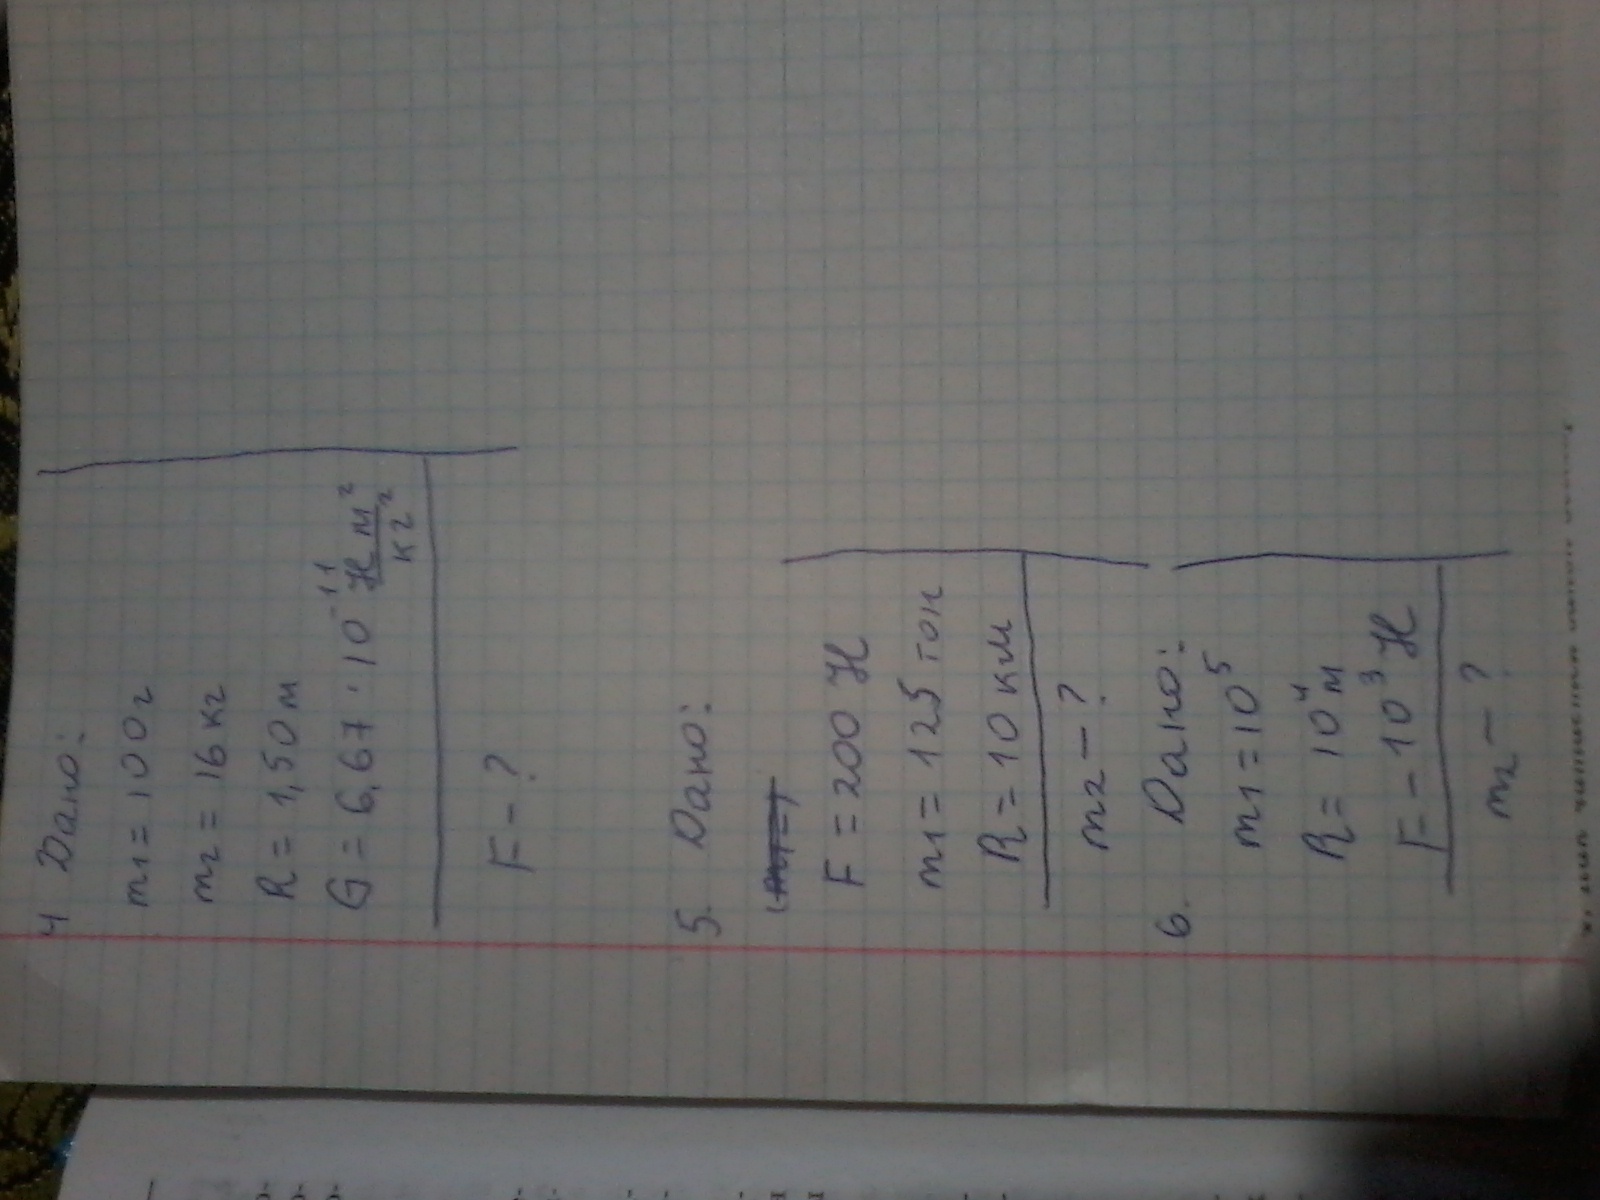 4 Дано:
m1 = 100г
m2 = 16 кг
R = 1,50 м
G = 6,67 · 10⁻¹¹ Н м²/кг²
F - ?
5. Дано:
F = 200 Н
m1 = 125 тон
R = 10 км
m2 - ?
6. Дано:
m1 = 10⁵
R = 10⁴ м
F - 10³ Н
m2 - ?